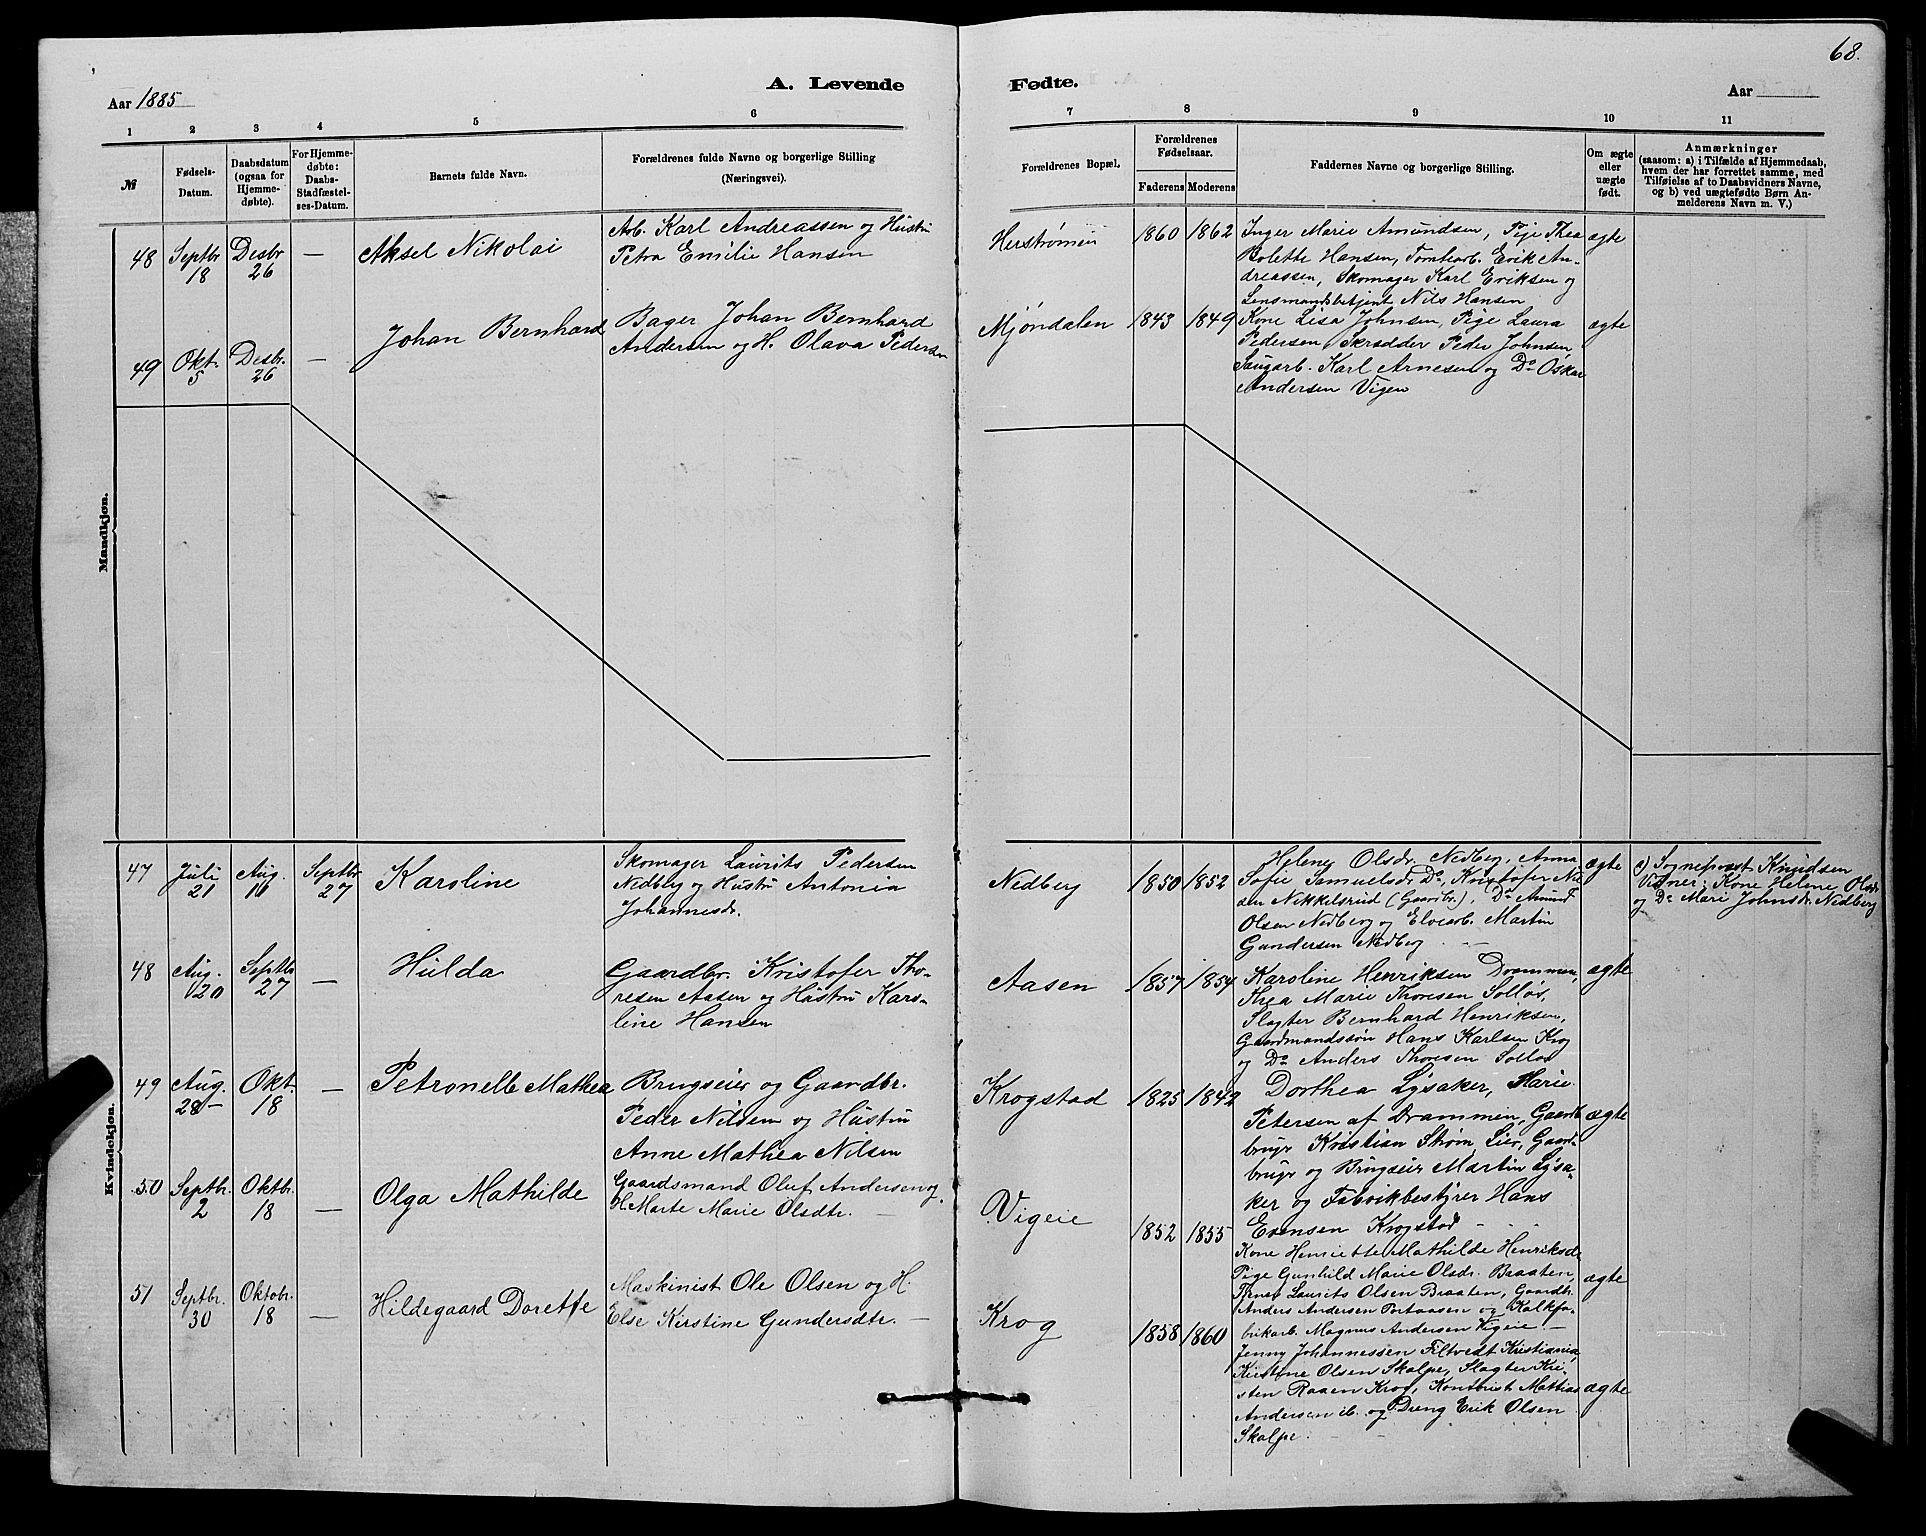 68.
A. Levende
Fødte.
Aar 1885
Aar
1 2 3 4 5 6
7 8 9 10 11
№
Fødsels-
Datum.
Daabsdatum
(ogsaa for
Hjemme-
døbte).
For Hjemme-
døbte:
Daabs-
Stadfæstel-
ses-Datum.
Barnets fulde Navn.
Forældrenes fulde Navne og borgerlige Stilling
(Næringsvei).
Forældrenes Bopæl.
Forældrenes
Fødselsaar.
Faderens Moderens
Faddernes Navne og borgerlige Stilling.
Om ægte
eller
uægte
født.
Anmærkninger
(saasom: a) i Tilfælde af Hjemmedaab,
hvem der har forrettet samme, med
Tilføielse af to Daabsvidners Navne,
og b) ved uægtefødte Børn An-
melderens Navn m. V.)
Mandkjøn.
48
Septbr
18
Desbr
26
—
Aksel Nikolai
Arb. Karl Andreassen og Hustru
Petra Emilie Hansen
Herstrømen
1860 1862
Inger Marie Amundsen, Pige Thea
Bolette Hansen, Tomtearb. Erik An-
dreassen, Skomager Karl Eriksen og
Lensmandsbetjent Nils Hansen
ægte
49
Okt.
5
Desbr.
26
—
Johan Bernhard
Bager Johan Bernhard
Andersen og H. Olava Pedersen
Mjøndalen
1843 1849
Kone Lisa Johnsen, Pige Laura
Pedersen, Skrædder Peder Johnsen,
Saugarb. Karl Arnesen og Do Oskar
Andersen Vigen
ægte
Kvindekjøn.
47
Juli
21
Aug.
16
Septbr
27
Karoline
Skomager Laurits Pedersen
Nedberg og Hustru Antonia
Johannesdr.
Nedberg
1850 1852
Helene Olsdr. Nedberg, Anna
Sofie Samuelsdr. Do, Kristofer
Nikkelsrud (Gaardbr.), Do Amund
Olsen Nedberg og Elvearb. Martin
Gundersen Nedberg
ægte
a) Sogneprest Knudsen
Vidner: Kone Helene Olsdr
og Do Mari Johnsdr. Nedberg
48
Aug.
20
Septbr
27
—
Hulda
Gaardbr. Kristofer Tho-
resen Aasen og Hustru Karo-
line Hansen
Aasen
1857 1854
Karoline Henriksen Drammen,
Thea Marie Thoresen Solløs,
Slagter Bernhard Henriksen,
Gaardmandssøn Hans Karlsen Krog
og Do Anders Thoresen Solløs
ægte
49
Aug.
28
Okt.
18
—
Petronelle Mathea
Brugseier og Gaardbr.
Peder Nilsen og Hustru
Anne Mathea Nilsen
Krogstad
1825 1842
Dorthea Lysaker, Marie
Petersen af Drammen, Gaard-
bruger Kristian Strøm Lier, Gaard-
bruger og Brugseier Martin Lysa-
ker og Fabrikbestyrer Hans
Evensen Krogstad
ægte
50
Septbr.
2
Oktbr.
18
—
Olga Mathilde
Gaardsmand Oluf Andersen og
H. Marte Marie Olsdtr. —
Vigeie
1852 1855
Kone Henriette Mathilde Henriksdr
Pige Gunhild Marie Olsdr. Braaten,
Laurits Olsen Braaten, Gaardbr.
Anders Andersen Portaasen og Kalkfa-
brikarb. Magnus Andersen Vigeie. —
ægte
51
Septbr.
30
Oktobr.
18
—
Hildegaard Dorette
Maskinist Ole Olsen og H.
Else Kirstine Gundersdtr. —
Krog
1858 1860
Jenny Johannessen Filtvedt Kristiania,
Kirstine Olsen Skalpe, Slagter Kri-
sten Raaen Krog, Kontorist Mattias
Andersen ib. og Dreng Erik Olsen
Skalpe.
ægte